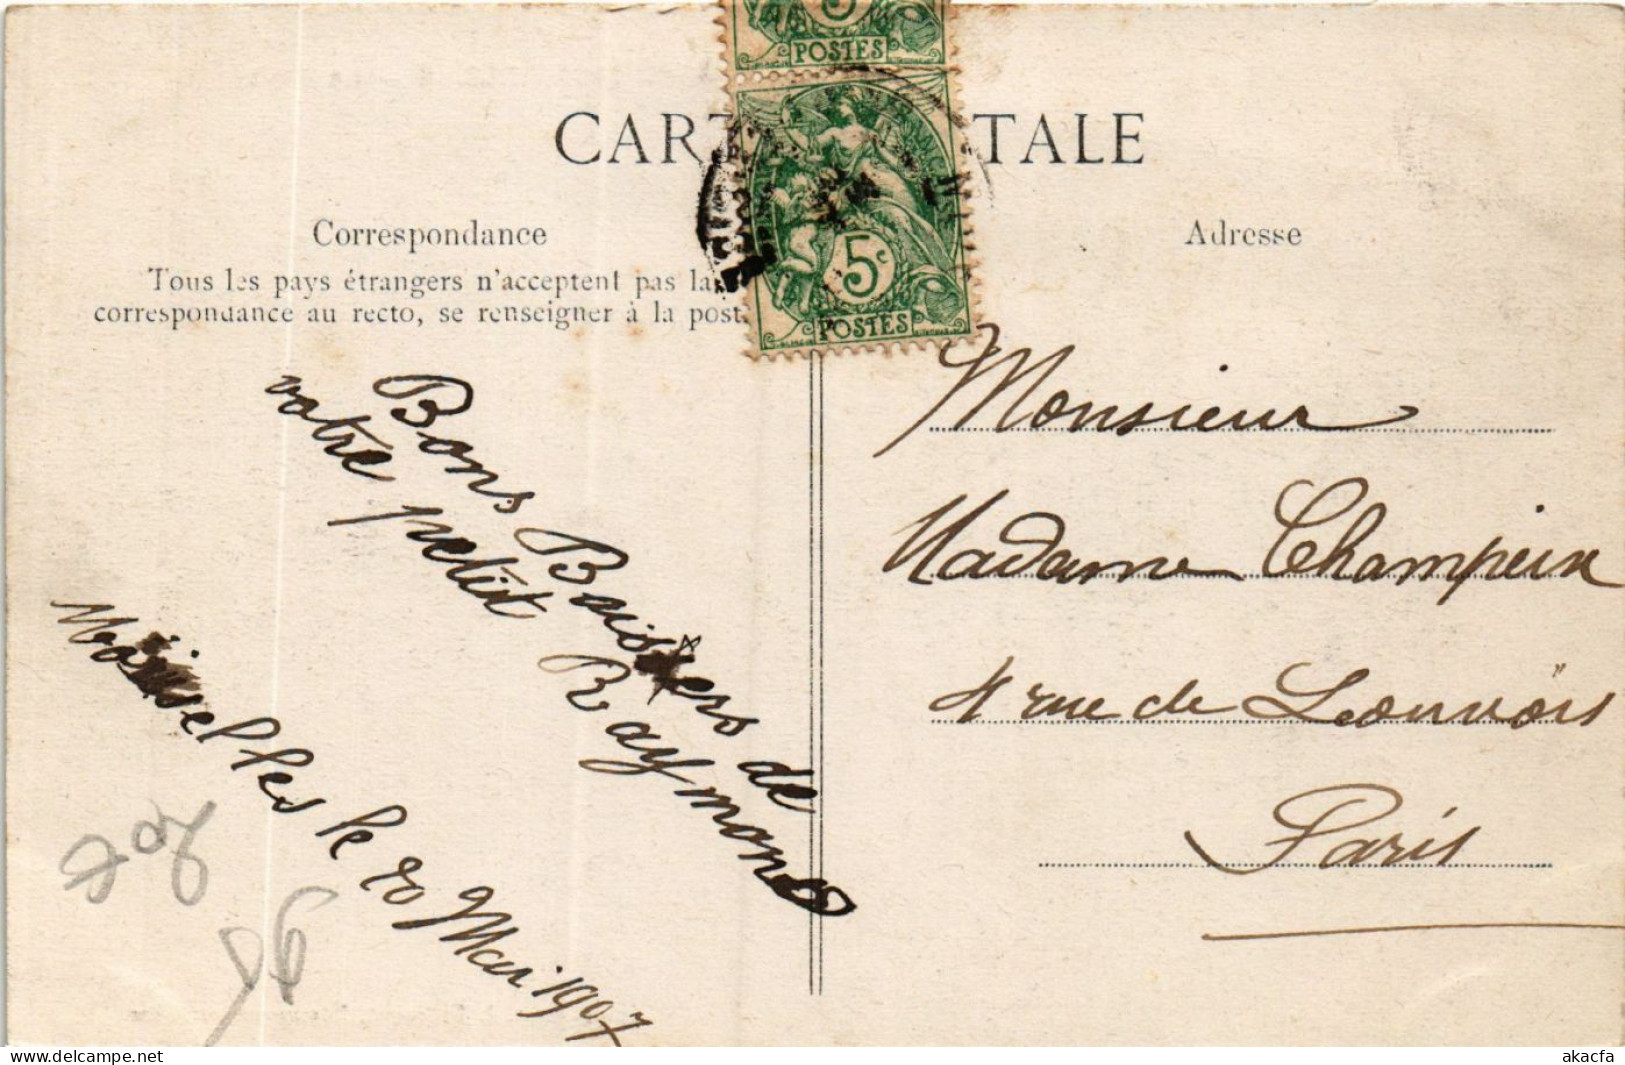 POSTES
CARTE POSTALE
5c
POSTES
Correspondance
Tous les pays étrangers n'acceptent pas la
correspondance au recto, se renseigner à la post
Adresse
Bons Baisers de
votre petit Raymond
Moiselles le 20 Mai 1907
Monsieur
Madame Champeix
4 rue de Louvois
Paris
707
95
www.delcampe.net
akacfa